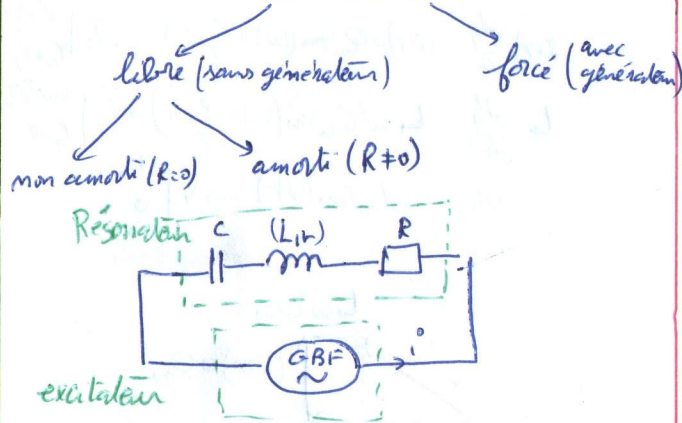 libre (sans générateur)
forcé (avec générateur)
non amorti (R=0)
amorti (R≠0)
Résonateur
C
(L,r)
R
GBF
~
i
excitateur